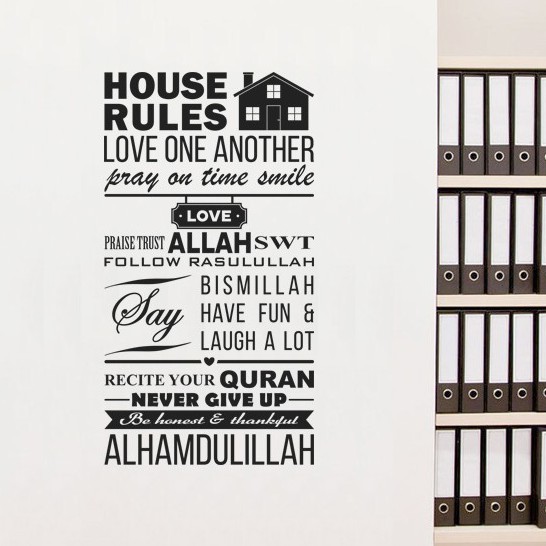 HOUSE
RULES
LOVE ONE ANOTHER
pray on time smile
· LOVE ·
PRAISE TRUST ALLAH SWT
FOLLOW RASULULLAH
Say
BISMILLAH
HAVE FUN &
LAUGH A LOT
RECITE YOUR QURAN
NEVER GIVE UP
Be honest & thankful
ALHAMDULILLAH